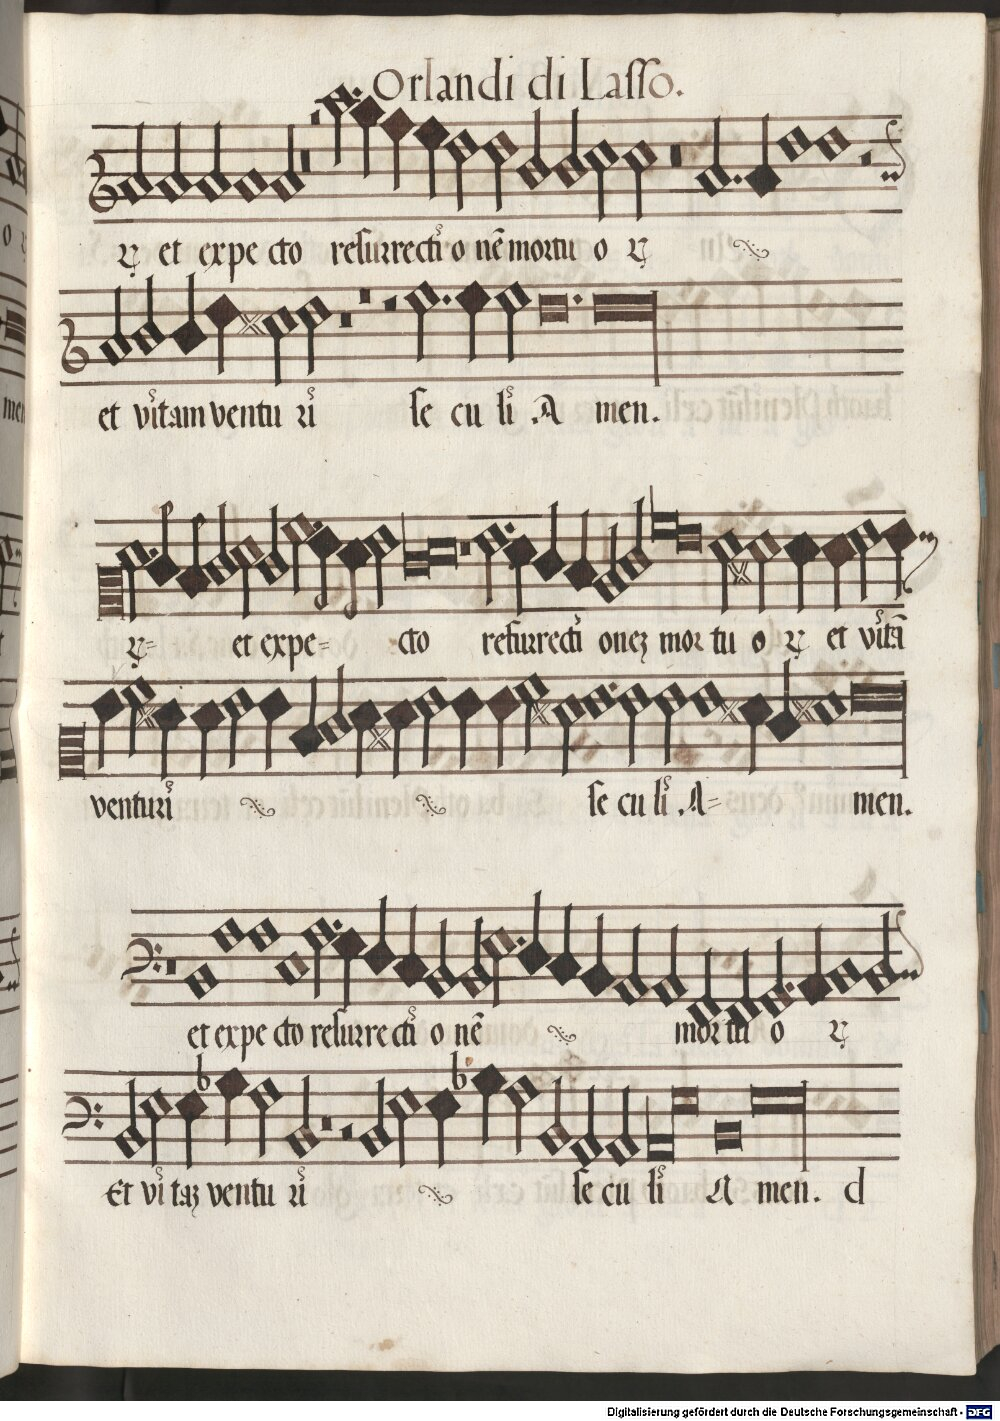 Orlandi di Lasso.
ꝝ et expe cto resurrecti o nē mortu o ꝝ
et vitam ventu ri se cu li A men.
ꝝ= et expe= cto resurrecti oneꝫ mor tu o ꝝ et vitā
venturi se cu li A= men.
et expe cto resurrecti o nē mor tu o ꝝ
Et vi taꝫ ventu ri se cu li A men. d
Digitalisierung gefördert durch die Deutsche Forschungsgemeinschaft - DFG